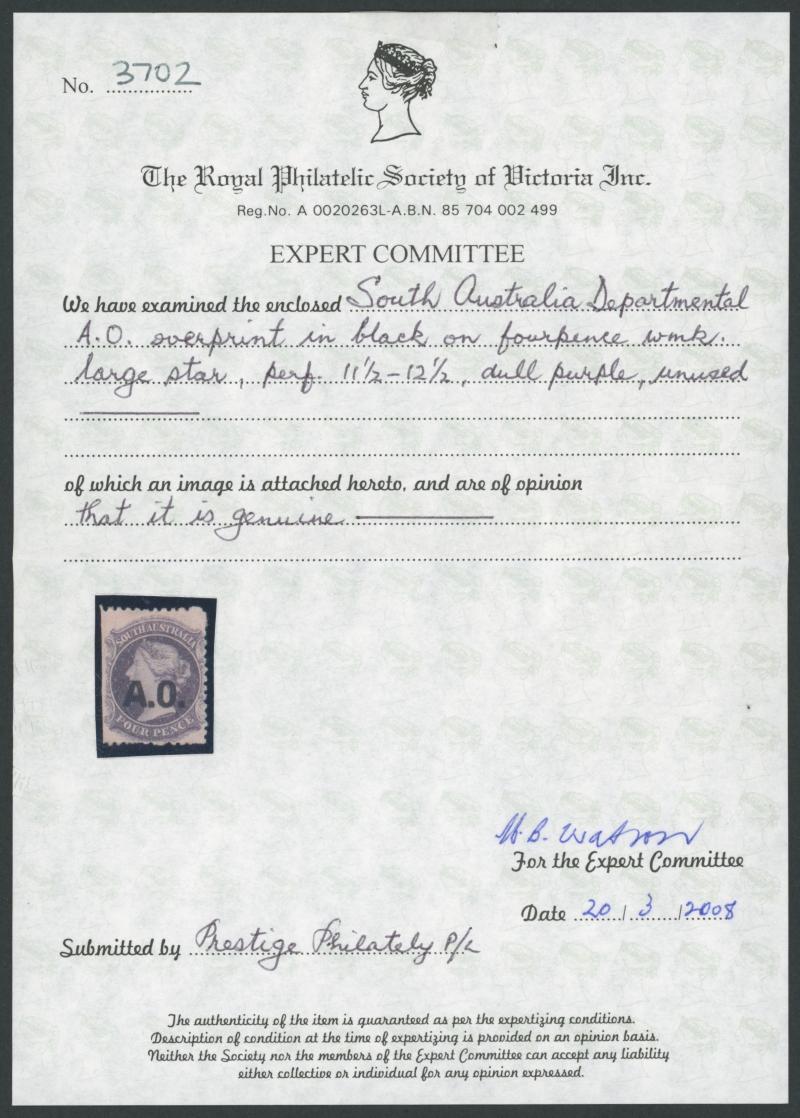 No. 3702
The Royal Philatelic Society of Victoria Inc.
Reg.No. A 0020263L-A.B.N. 85 704 002 499
EXPERT COMMITTEE
We have examined the enclosed South Australia Departmental
A.O. overprint in black on fourpence wmk.
large star, perf. 11½-12½, dull purple, unused
of which an image is attached hereto, and are of opinion
that it is genuine
SOUTH AUSTRALIA
A.O.
FOUR PENCE
W.B. Watson
For the Expert Committee
Date 20/3/2008
Submitted by Prestige Philately P/L
The authenticity of the item is guaranteed as per the expertizing conditions.
Description of condition at the time of expertizing is provided on an opinion basis.
Neither the Society nor the members of the Expert Committee can accept any liability
either collective or individual for any opinion expressed.